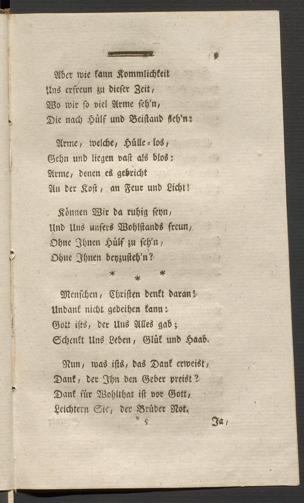 9
Aber wie kann Kommlichkeit
Uns erfreun zu dieser Zeit,
Wo wir so viel Arme seh'n,
Die nach Hülf und Beistand fleh'n:
Arme, welche, Hülle-los,
Gehn und liegen vast als blos:
Arme, denen es gebricht
An der Kost, an Feur und Licht!
Können Wir da ruhig seyn,
Und Uns unsers Wohlstands freun,
Ohne Ihnen Hülf zu seh'n,
Ohne Ihnen beyzusteh'n?
* * *
Menschen, Christen denkt daran;
Undank nicht gedeihen kann:
Gott ists, der Uns Alles gab;
Schenkt Uns Leben, Glük und Haab.
Nun, was ists, das Dank erweist,
Dank, der Ihn den Geber preist?
Dank für Wohlthat ist vor Gott,
Leichtern Sie, der Brüder Not.
* 5 Ja,